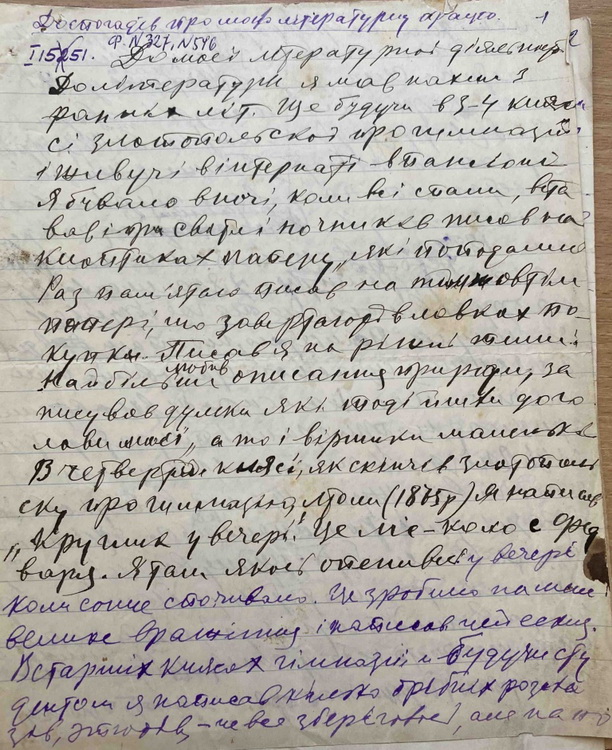 До спогадів про мою літературну працю. 1
І 15251. Ф. N 327, N 546 До моєї літературної діяльност 2
До літератури я мав нахил з
ранніх літ. Ще будучи в 3-4 кля
сі златопольскої прогимназії
і живучі в інтернаті
я бувало вночі, коли всі спали, вста
вав і при світлі ночників писав на
клаптиках паперу, які попадалися
Раз пам'ятаю писав на жовтім
папері, що завертають в лавках по
купки. Писав я на ріжні теми:
найбільш любив описання природи, за
писував думки які тоді йшли до го
лови моєї, а то і віршики маленькі
В четвертій клясі, як скінчів златополь
ску прогимназію, (1875р) я написав
„Круглик у вечері". Це
Я там якось опинився у вечері
коли сонце спочивало. Це зробило на мене
велике вражіння і написав цей ескиз.
В старших клясах гімназії и будучи сту
дентом я написав кілько дрібних розска
зів, етюдів, – не все збереговісі, але